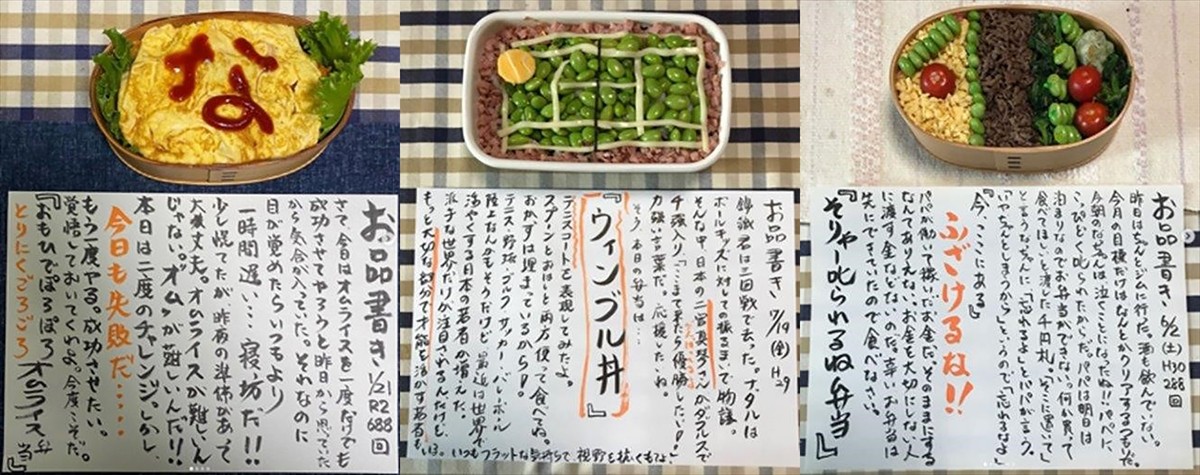 お品書き 1/21 R2 688回
成功させてやろうと昨日から思ってい
たから気合が入っていた。それなのに
目が覚めたらいつもより
一時間遅い…寝坊だ!!
少し慌てたが昨夜の準備があって
大丈夫。オムライスが難しいん
じゃない。オムが難しいんだ!!
本日は二度のチャレンジ。しかし、
今日も失敗だ……
もう一度やる。成功させたい。
覚悟しておいてくれよ。今度こそだ。
『おもひでぽろぽろ オムライス弁当』
とりにくごろごろ
お品書き 7/19(金) H29
錦織君は三回戦で去った。ナダルは
ボーキッズに対しての振るまいで物議。
そんな中、日本の二宮真琴さんがダブルスで
「ここまで来たら優勝したい!」
力強い言葉だ。応援したいね
そう、本日の弁当は…
『ウィンブル丼』
テニスコートを表現してみたよ。
スプーンとおはしと両方使って食べてね。
おかずは埋まっているから!
テニス・野球・ゴルフ・サッカー・バレーボール
陸上なんかもそうだけど、最近は世界で
活やくする日本の若者が増えた。
派手な世界だけが注目されてるんだけど、
もっと大切な部分で才能を活かす若者もいる。
いつもフラットな気持ちで、視野を拡くもとう。
お品書き 6/2(土) H30 288回
昨日はちゃんとジムに行た。酒も飲んでない。
今月の目標だけはなんとかクリアするつもりだ。
こっぴどく叱られたから。パパは明日は
泊まりなのでお弁当ができない。何か買って
食べてほしいと渡した千円札。「そこに置いて」
「今、ここにある」
ふざけるな!!
パパが働いて稼いだお金だ。そのままにする
なんてありえない。お金を大切にしない人
に渡す金などないのだ。幸いお弁当は
先にできていたので食べなさい。
『そりゃー叱られるね弁当』